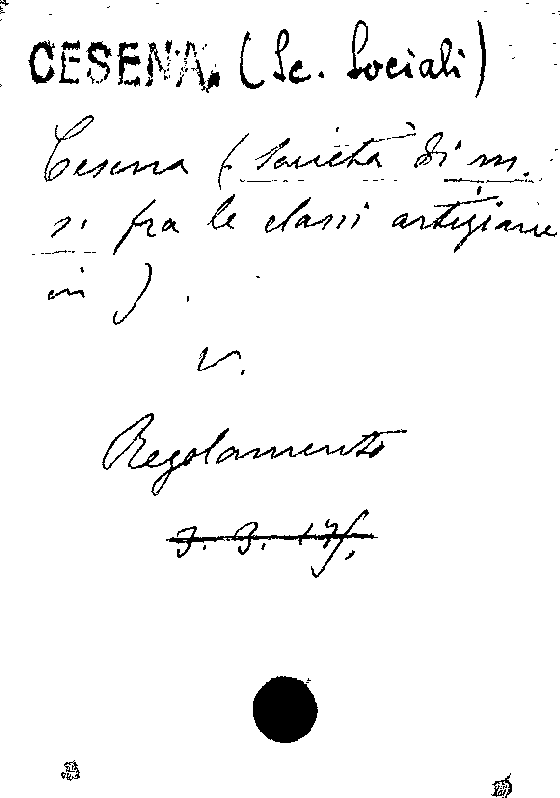 CESENA. (Sc. Sociali)
Cesena (Società di m.
s. fra le classi artigiane
in).
v.
Regolamento
3. 3. 17/,